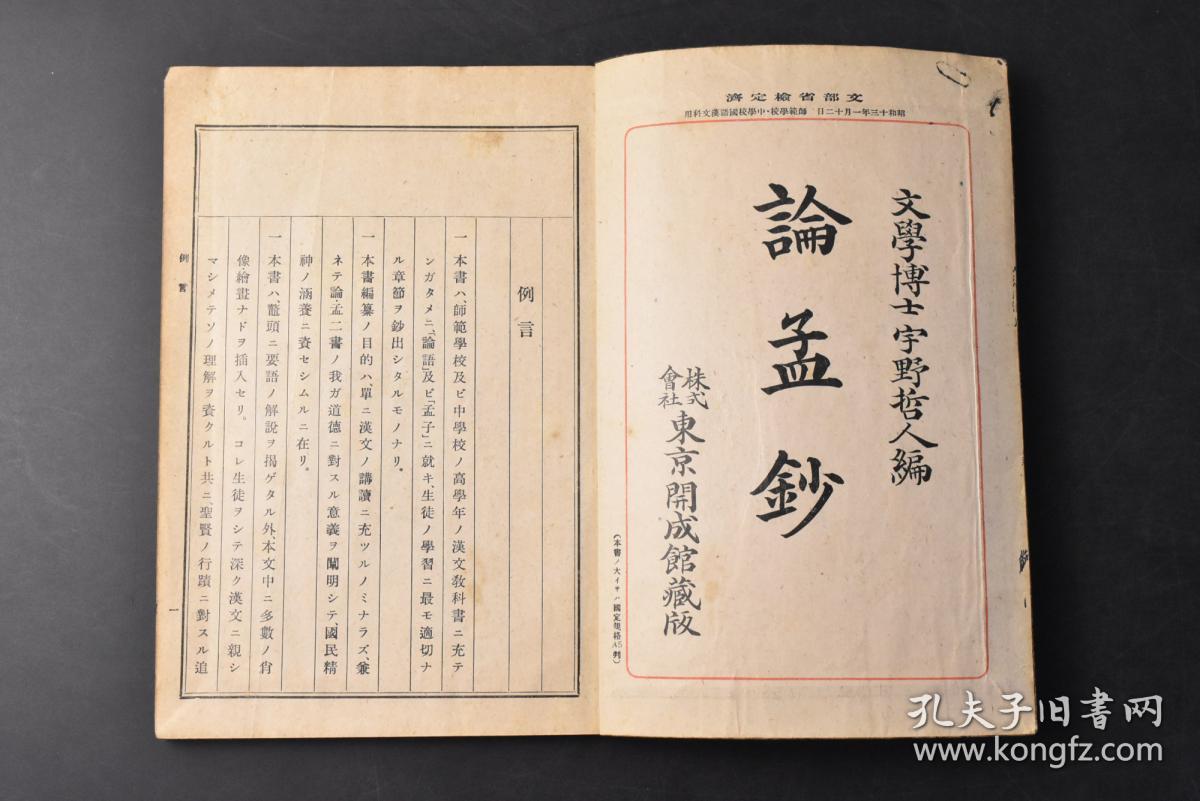 文部省檢定濟
昭和十三年一月十二日 師範學校・中學校國語漢文科用
文學博士宇野哲人編
論孟鈔
株式會社東京開成館藏版
(本書ノ大イサハ國定規格A5判)
例言
一 本書ハ、師範學校及ビ中學校ノ高學年ノ漢文敎科書ニ充テ
ンガタメニ、「論語」及ビ「孟子」ニ就キ、生徒ノ學習ニ最モ適切ナ
ル章節ヲ鈔出シタルモノナリ。
一 本書編纂ノ目的ハ、單ニ漢文ノ講讀ニ充ツルノミナラズ、兼
ネテ論・孟二書ノ我ガ道德ニ對スル意義ヲ闡明シテ、國民精
神ノ涵養ニ資セシムルニ在リ。
一 本書ハ、鼇頭ニ要語ノ解說ヲ揭ゲタル外、本文中ニ多數ノ肖
像・繪畫ナドヲ插入セリ。コレ生徒ヲシテ深ク漢文ニ親シ
マシメテソノ理解ヲ資クルト共ニ、聖賢ノ行蹟ニ對スル追
例言
一
孔夫子旧书网
www.kongfz.com